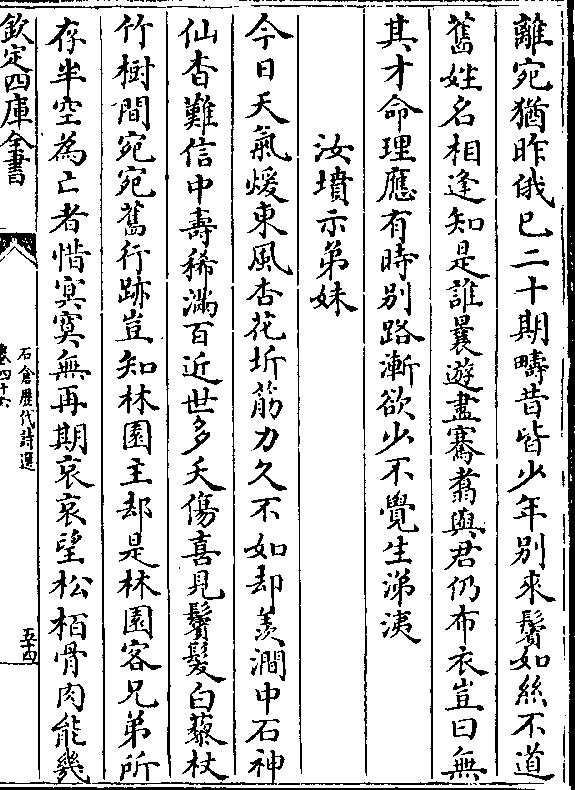 離宛猶昨俄已二十期疇昔皆少年别來鬢如絲不道
舊姓名相逢知是誰曩遊盡騫翥與君仍布衣豈曰無
其才命理應有時别路漸欲少不覺生涕洟
汝墳示弟妹
今日天氣煖東風杏花坼筋力久不如却羨澗中石神
仙杳難信中壽稀滿百近世多夭傷喜見鬢髮白藜杖
竹樹間宛宛舊行跡豈知林園主却是林園客兄弟所
存半空為亡者惜冥冥無再期哀哀望松栢骨肉能幾
欽定四庫全書
石倉歷代詩選
卷四十六
五十四